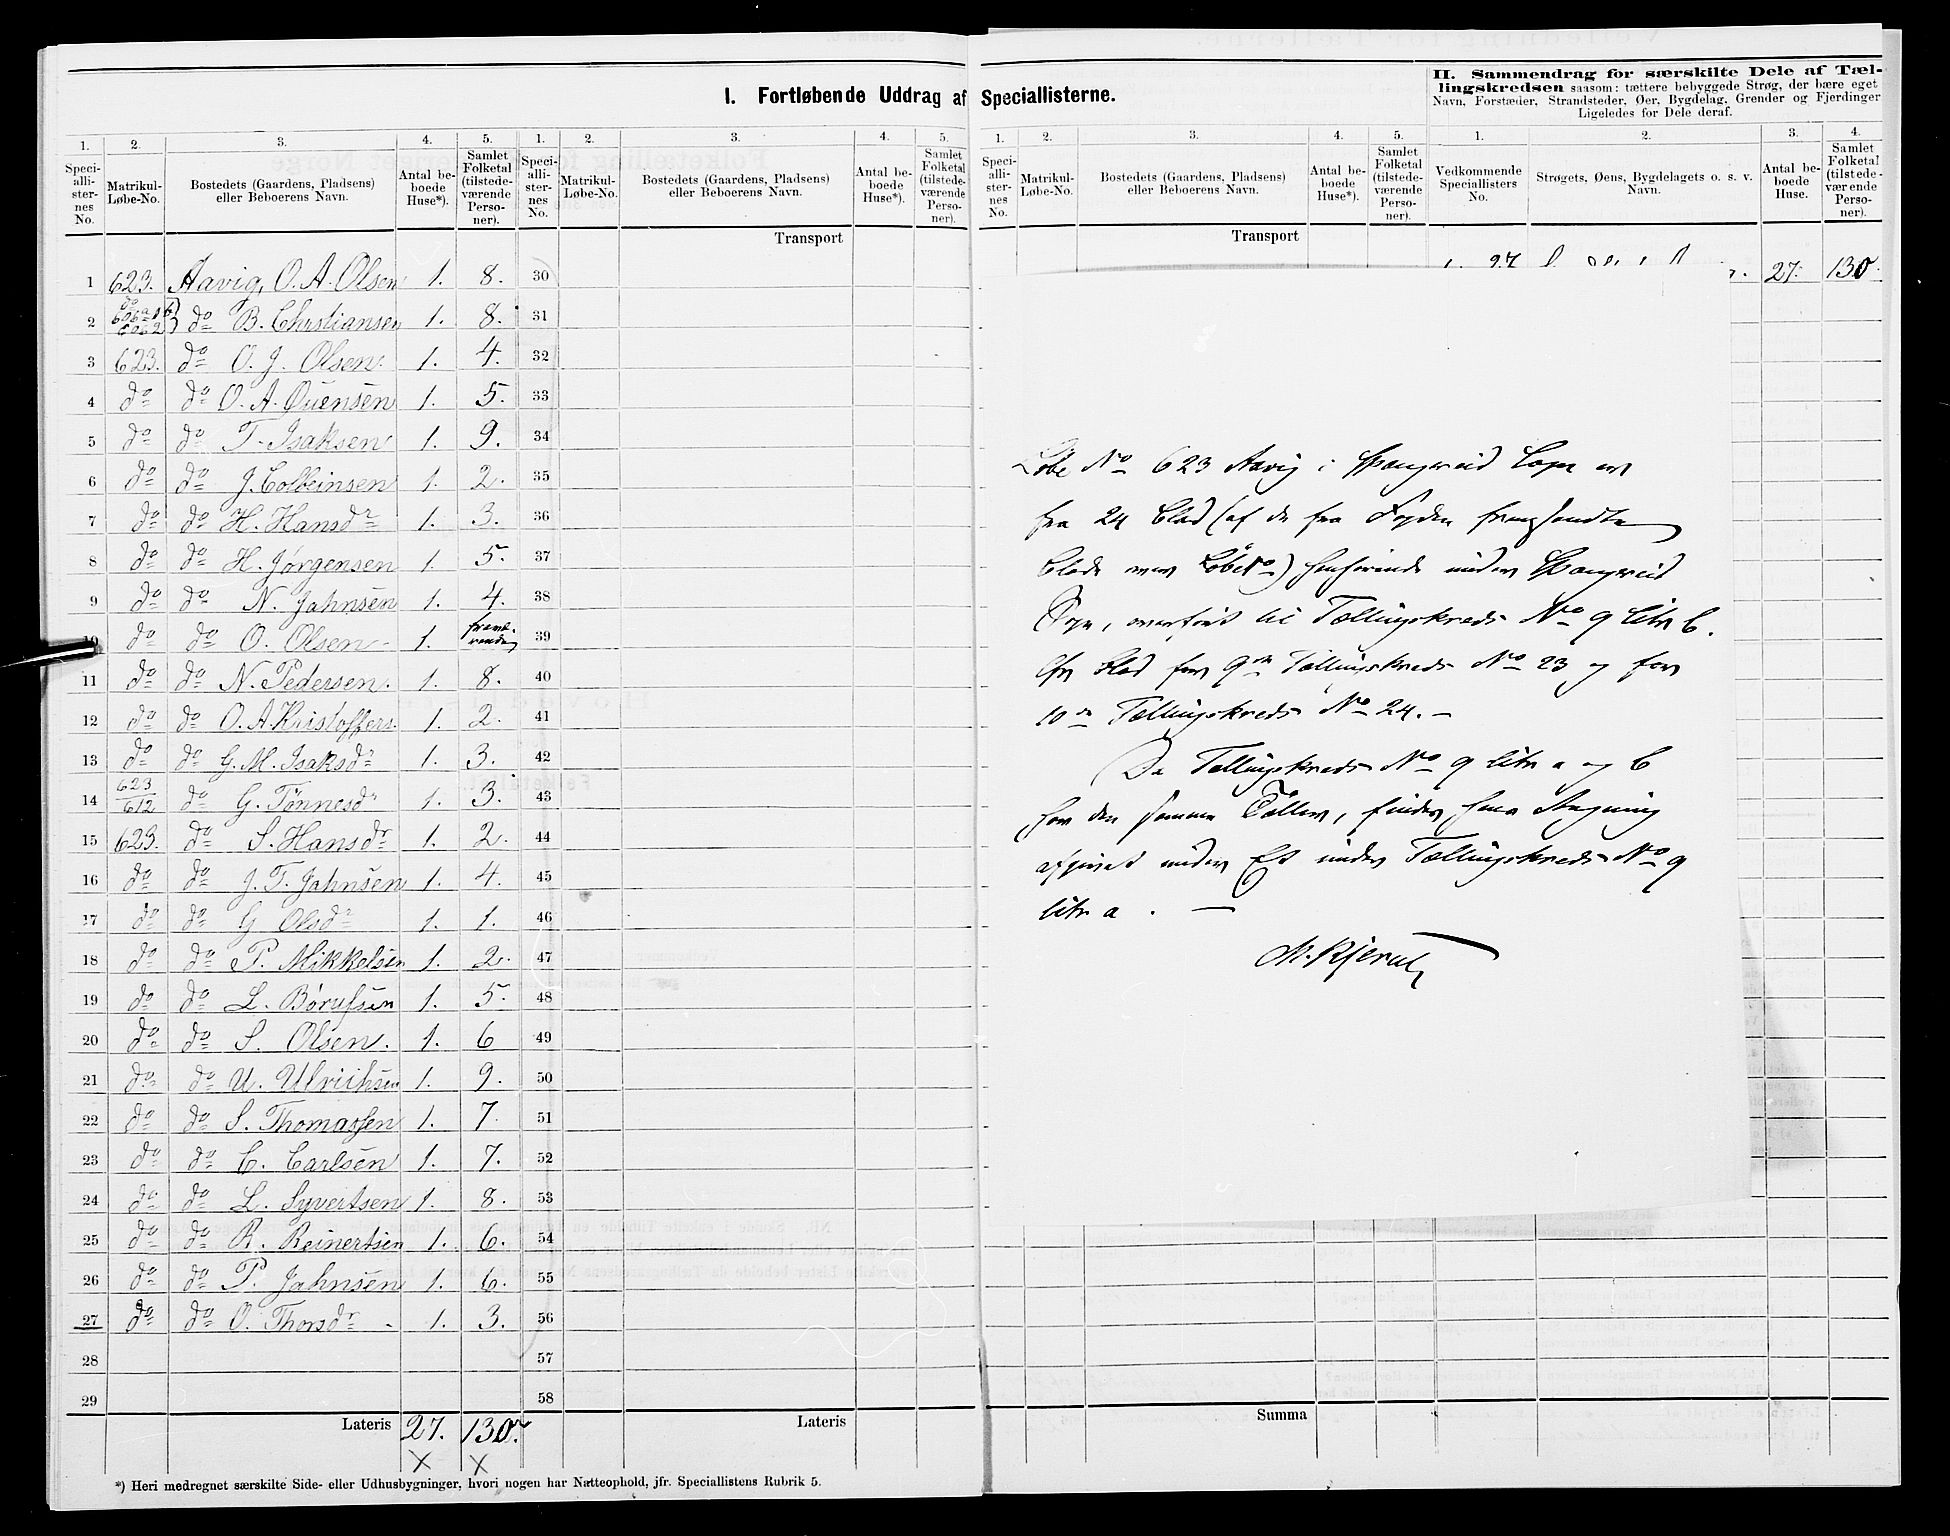 I. Fortløbende Uddrag af Speciallisterne.
II. Sammendrag for særskilte Dele af Tæl-
lingskredsen saasom: tættere bebyggede Strøg, der bære eget
Navn, Forstæder, Strandsteder, Øer, Bygdelag, Grender og Fjerdinger
Ligeledes for Dele deraf.
1. 2. 3. 4. 5. 1. 2. 3. 4. 5.
Speciallisternes No. Matrikul-Løbe-No. Bostedets (Gaardens, Pladsens) eller Beboerens Navn. Antal beboede Huse*). Samlet Folketal (tilstedeværende Personer).
Speciallisternes No. Matrikul-Løbe-No. Bostedets (Gaardens, Pladsens) eller Beboerens Navn. Antal beboede Huse*). Samlet Folketal (tilstedeværende Personer).
Transport
1 623. Aavig, O. A. Olsen 1. 8. 30
2 do do B. Chrstiansen 1. 8. 31
3 623. do O. J. Olsen. 1. 4. 32
4 do do O. A. Ouensen 1. 5. 33
5 do do T. Isaksen 1. 9. 34
6 do do J. Colbeinsen 1. 2. 35
7 do do H. Hansdr 1. 3. 36
8 do do H. Jørgensen 1. 5. 37
9 do do N. Jahnsen 1. 4. 38
10 do do O. Olsen 1. 39
11 do do N. Pedersen. 1. 8. 40
12 do do O. A. Kristoffers. 1. 2. 41
13 do do G. M. Isaksdr 1. 3. 42
14 623 612 do G. Tønnesdr 1. 3. 43
15 623. do S. Hansdr 1. 2. 44
16 do do J. T. Jahnsen 1. 4. 45
17 do do G Olsdr 1. 1. 46
18 do do P. Mikkelsen 1. 2. 47
19 do do L. Børufsen 1. 5. 48
20 do do S. Olsen. 1. 6 49
21 do do U. Ulrichsen 1. 9. 50
22 do do S. Thomassen 1. 7 51
23 do do C. Carlsen 1. 7. 52
24 do do L. Syvertsen 1. 8. 53
25 do do R. Reinertsen 1. 6. 54
26 do do P. Jahnsen 1. 6. 55
27 do do O. Thorsdr 1. 3. 56
28 57
29 58
Lateris 27. 130. Lateris
*) Heri medregnet særskilte Side- eller Udhusbygninger, hvori nogen har Natteophold, jfr. Speciallistens Rubrik 5.
1. 2. 3. 4. 5. 1. 2. 3. 4.
Speciallisternes No. Matrikul-Løbe-No. Bostedets (Gaardens, Pladsens) eller Beboerens Navn. Antal beboede Huse*). Samlet Folketal (tilstedeværende Personer).
Vedkommende Speciallisters No. Strøgets, Øens, Bygdelagets o. s. v. Navn. Antal beboede Huse. Samlet Folketal (tilstedeværende Personer).
Transport
27. 130.
Løbe No 623 Aavig i Spangereid Sogn er
fra 24 Blad (af de fra Fogden fremsendte
Blade over LøbeNo) henførende under Spangereid
Sogn, overført til Tællingskreds No 9 litr b.
Cfr Blad for 9de Tællingskreds No 23 og for
10de Tællingskreds No 24. -
Da Tællingskreds No 9 litr a og b
har den samme Tæller, findes hans
afgivet under Et under Tællingskreds No 9
litr a. -
Summa